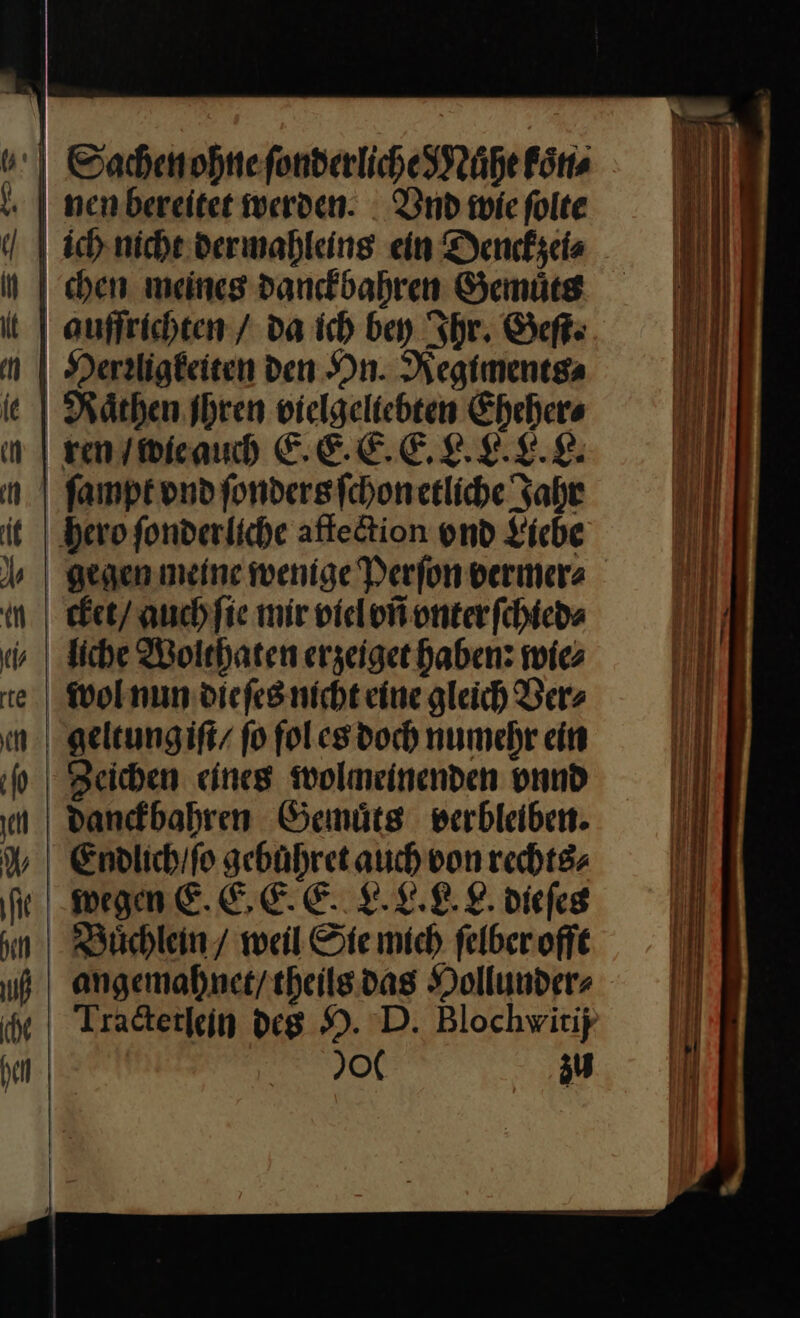 Sachen ohne ſonderliche Muͤhe koͤn⸗
nen bereitet werden. Vnd wie ſolte
ich nicht dermahleins ein Denckzei⸗
chen meines danckbahren Gemuͤts
auffrichten / da ich bey Ihr. Geſt.
Herꝛligkeiten den Hn. Regiments⸗
Raͤthen jhren vielgeliebten Eheher⸗
ren / wie auch E. E. E. E. L. L. L. L.
ſampt vnd ſonders ſchon etliche Jahr
hero ſonderliche affection vnd Liebe
gegen meine wenige Perſon vermer⸗
cket / auch ſie mir viel vñ vnterſchied⸗
liche Wolthaten erzeiget haben: wie⸗
wol nun dieſes nicht eine gleich Ver⸗
geltung iſt / ſo ſol es doch numehr ein
Zeichen eines wolmeinenden vnnd
danckbahren Gemuͤts verbleiben.
Endlich / ſo gebuͤhret auch von rechts⸗
wegen E. E. E. E. L. L. L. L. dieſes
Buͤchlein / weil Sie mich ſelber offt
angemahnet / theils das Hollunder⸗
Tracterlein des H. D. Blochwitij
)o( zu